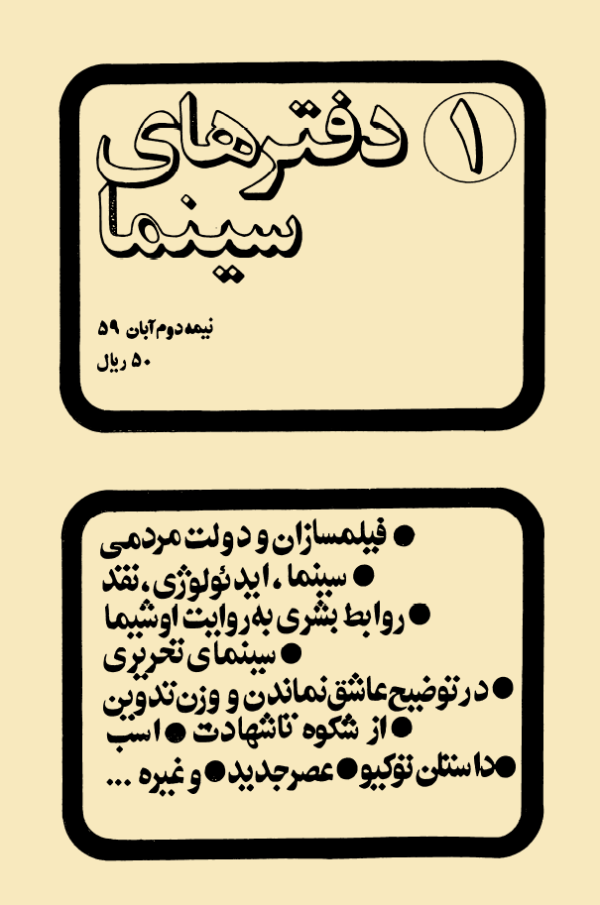 ۱
دفترهای
سینما
نیمه‌دوم‌آبان ۵۹
۵۰ ریال
● فیلمسازان و دولت مردمی
● سینما، ایدئولوژی، نقد
● روابط بشری به‌روایت اوشیما
● سینمای تخریری
● در توضیح عاشق‌نماندن و وزن تدوین
● از شکوه تاشهادت ● اسب
● داستان توکیو ● عصرجدید ● و غیره ...